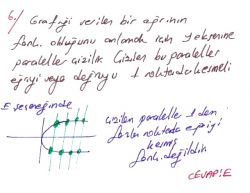 6./ Grafiği verilen bir ağrının
fonk. olduğunu anlamak için y eksenine
paraleller çizilir. Çizilen bu paraleller
eğriyi veya doğruyu 1 noktada kesmeli
E seçeneğinde
çizilen paraleller 1 den
fazla noktada eğriyi
kesmiş
fonk. değildir.
CEVAP: E